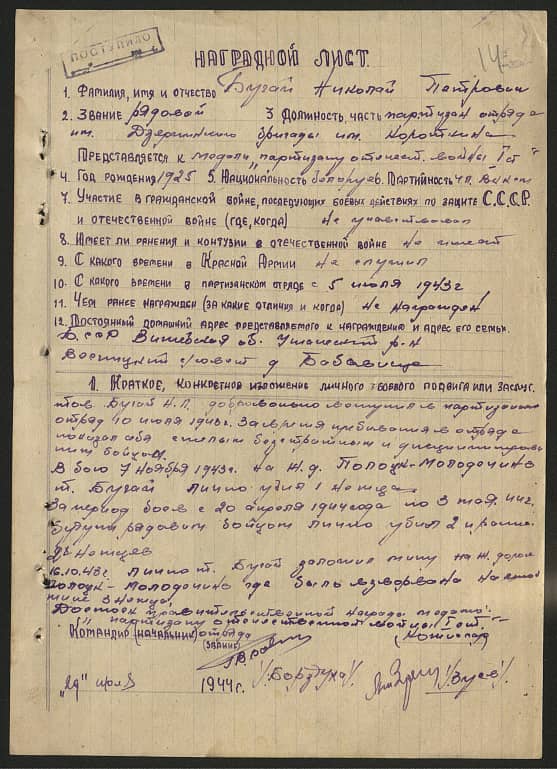 ПОСТУПИЛО
14
НАГРАДНОЙ ЛИСТ.
1. ФАМИЛИЯ, ИМЯ И ОТЧЕСТВО Бугай Николай Петрович
2. ЗВАНИЕ рядовой 3 ДОЛЖНОСТЬ, ЧАСТЬ партизан отряда
им. Дзержинского бригады им. Короткина
ПРЕДСТАВЛЯЕТСЯ К медали "партизану отечест. войны I ст"
4. ГОД РОЖДЕНИЯ 1925 5. НАЦИОНАЛЬНОСТЬ белорус 6. ПАРТИЙНОСТЬ чл. ВЛКСМ
7. УЧАСТИЕ В ГРАЖДАНСКОЙ ВОЙНЕ, ПОСЛЕДУЮЩИХ БОЕВЫХ ДЕЙСТВИЯХ ПО ЗАЩИТЕ С.С.С.Р.
И ОТЕЧЕСТВЕННОЙ ВОЙНЕ (ГДЕ, КОГДА) Не участвовал
8. ИМЕЕТ ЛИ РАНЕНИЯ И КОНТУЗИИ В ОТЕЧЕСТВЕННОЙ ВОЙНЕ Не имеет
9. С КАКОГО ВРЕМЕНИ В КРАСНОЙ АРМИИ не служил
10. С КАКОГО ВРЕМЕНИ В ПАРТИЗАНСКОМ ОТРЯДЕ с 5 июля 1943 г
11. ЧЕМ РАНЕЕ НАГРАЖДЕН (ЗА КАКИЕ ОТЛИЧИЯ И КОГДА) не награжден
12. ПОСТОЯННЫЙ ДОМАШНИЙ АДРЕС ПРЕДСТАВЛЯЕМОГО К НАГРАЖДЕНИЮ И АДРЕС ЕГО СЕМЬИ.
БССР Витебская об. Ушачский р-н
с/совет д Бабавище
1. КРАТКОЕ, КОНКРЕТНОЕ ИЗЛОЖЕНИЕ ЛИЧНОГО БОЕВОГО ПОДВИГА ИЛИ ЗАСЛУГ.
тов Бугай Н.П. добровольно вступил в партизанский
отряд 10 июля 1943г. За время пребывания в отряде
показал себя смелым безстрашным и
бойцом.
В бою 7 Ноября 1943г. на ж.д. Полоцк-Молодечно
т. Бугай лично убил 1 немца.
За период боев с 20 апреля 1944 года по 3 мая
будучи рядовым бойцом лично убил 2 и
2х немцев
16.10.43г. лично т. Бугай заложил мину на ж. дороге
Полоцк - Молодечно где была взорвана
3 немца.
Достоин правительственной награды медали
"партизану отечественной войны I ст."
КОМАНДИР (НАЧАЛЬНИК) отряда
(ЗВАНИЕ)
Комиссар
"29" июля 1944 г.